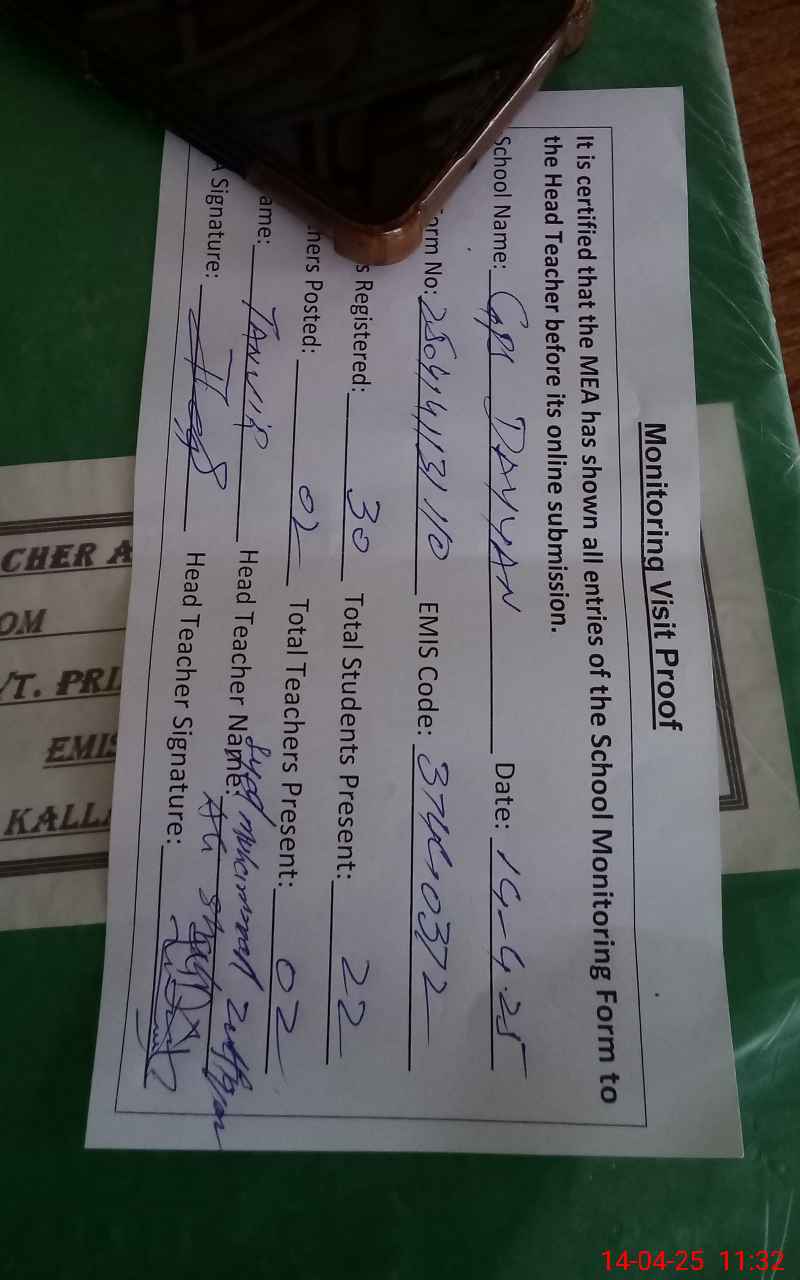 Monitoring Visit Proof
It is certified that the MEA has shown all entries of the School Monitoring Form to
the Head Teacher before its online submission.
School Name: GPS DAYYAN Date: 14-4-25
orm No: EMIS Code: 37440372
s Registered: 30 Total Students Present: 22
hers Posted: 02 Total Teachers Present: 02
ame: TANVIR Head Teacher Name: Syed Muhammad
Ali Shah
A Signature: Head Teacher Signature:
CHER A
OM
/T. PRI
EMIS
KALLA
14-04-25 11:32